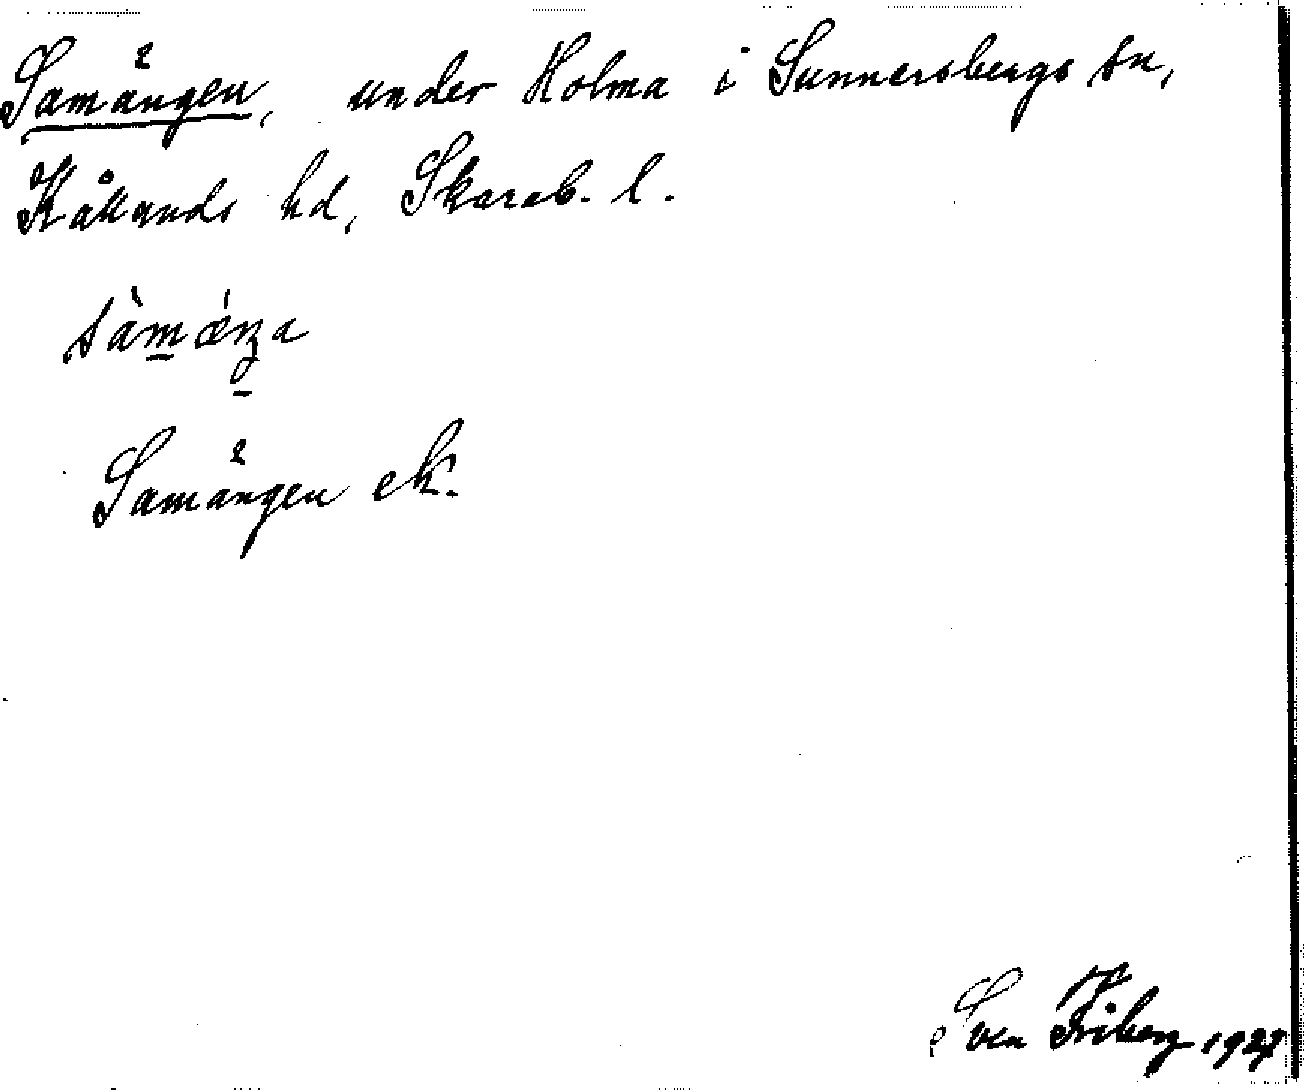 Samängen, under Holma i Sunnersbergs sn,
Kållands hd, Skarab. l.
sàmǽŋa
Samängen ek.
Sven Friberg 1927